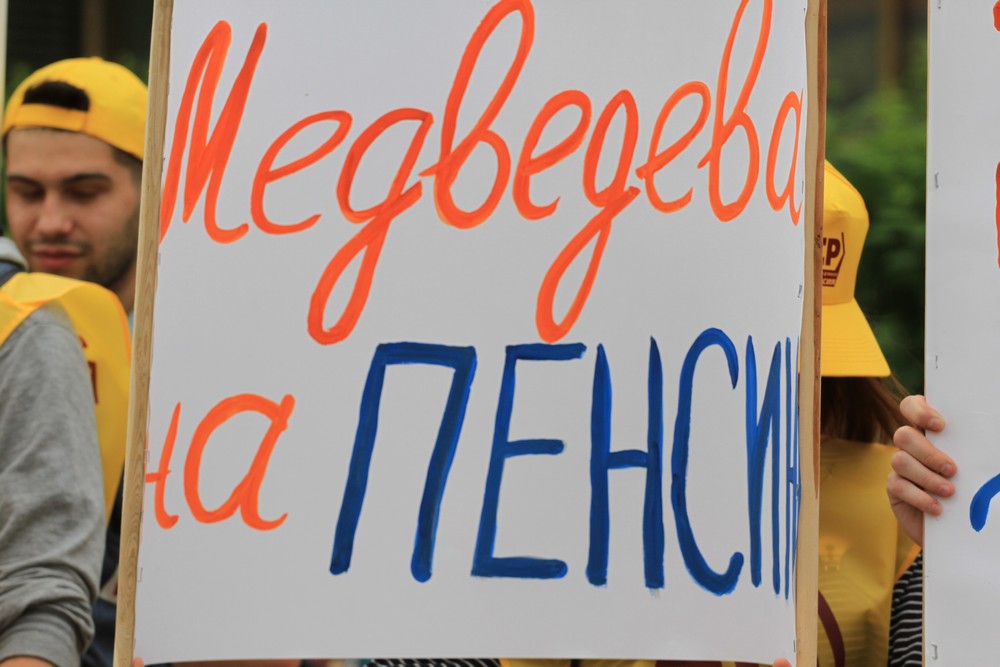 Медведева
на ПЕНСИЮ
СР